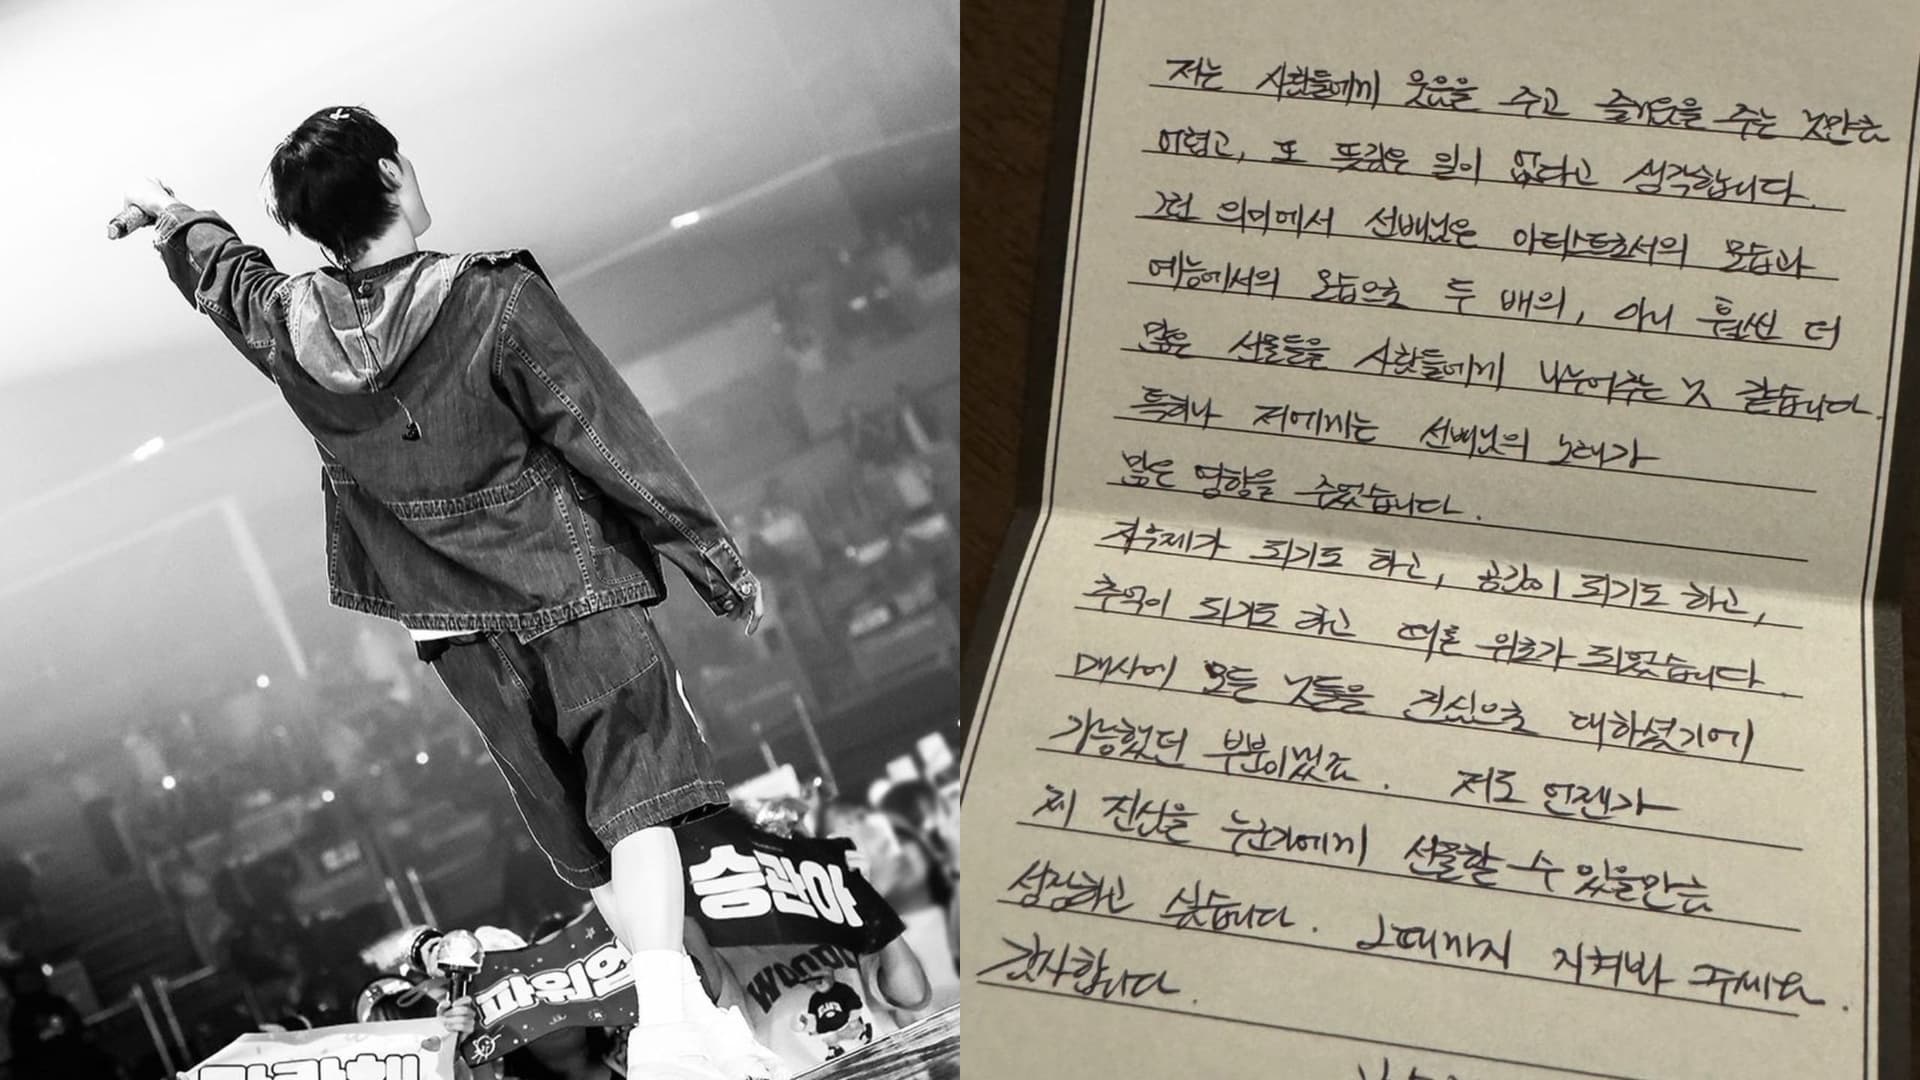 승관아
파워열
WOOOO
저는 사람들에게 웃음을 주고 즐거움을 주는 것만큼
어렵고, 또 뜻깊은 일이 없다고 생각합니다.
그런 의미에서 선배님은 아티스트로서의 모습과
예능에서의 모습으로 두 배의, 아니 훨씬 더
많은 선물들을 사람들에게 나누어주는 것 같습니다.
특히나 저에게는 선배님의 노래가
많은 영향을 주었습니다.
자극제가 되기도 하고, 공감이 되기도 하고,
추억이 되기도 하고 때론 위로가 되었습니다.
매사에 모든 것들을 진심으로 대하셨기에
가능했던 부분이겠죠. 저도 언젠가
제 진심을 누군가에게 선물할 수 있을만큼
성장하고 싶습니다. 그때까지 지켜봐 주세요.
감사합니다.